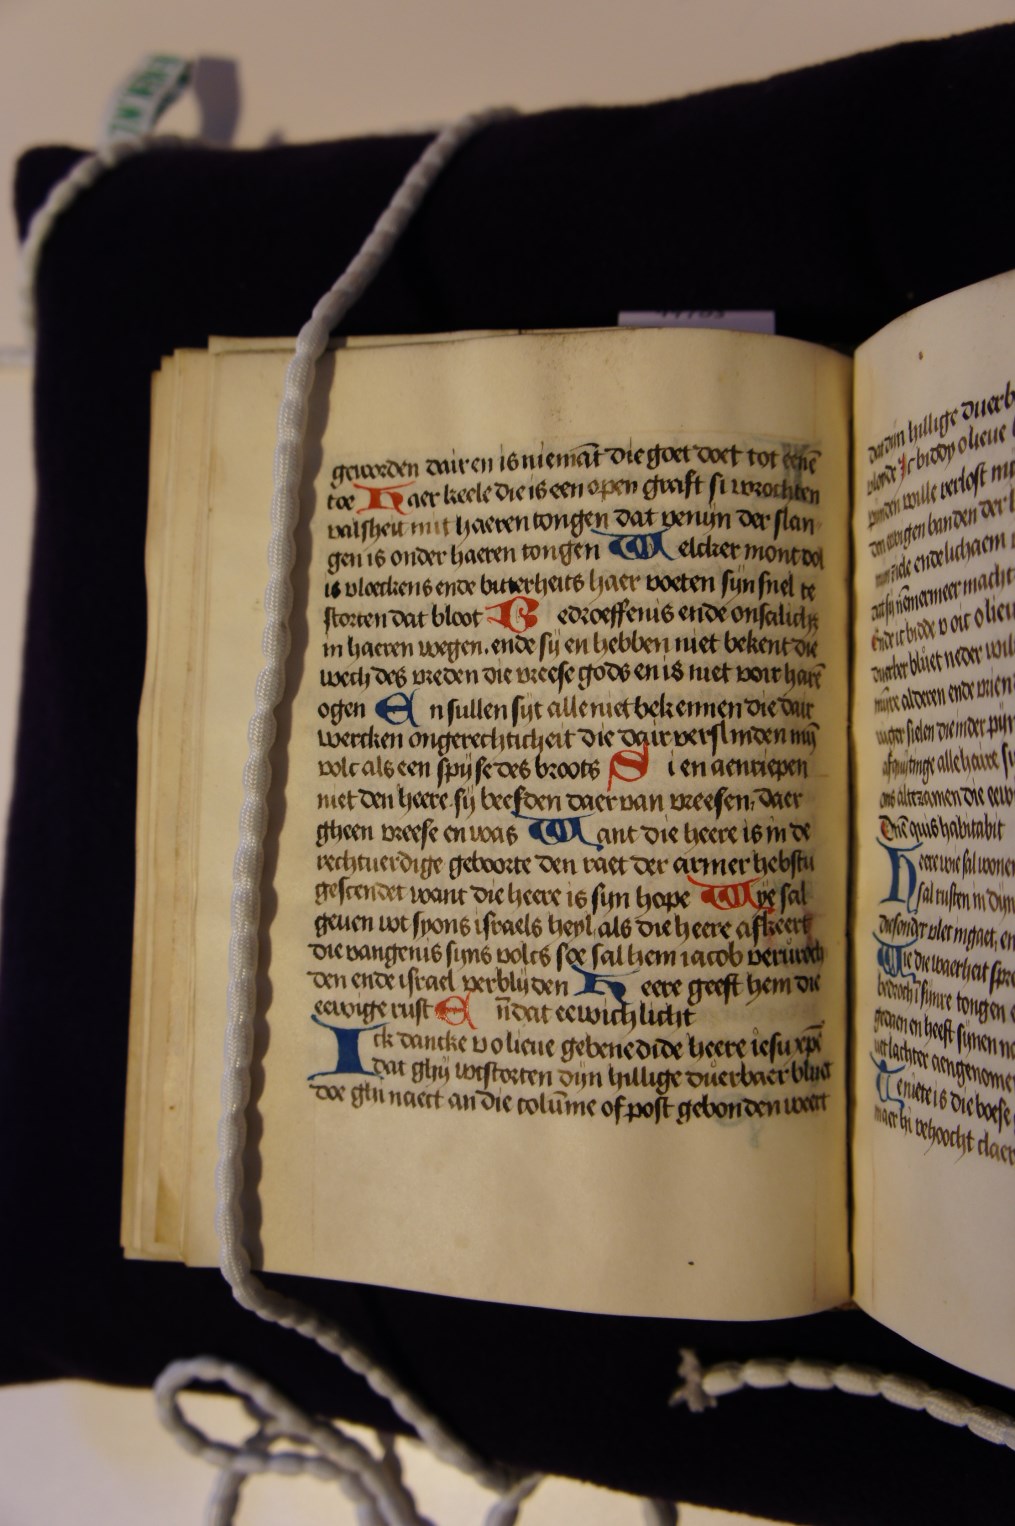 geworden dair en is niemāt die goet doet tot eenē
toe Haer keele die is een open graft si wrochten
valsheit mit haeren tongen dat venijn der slan
gen is onder haeren tongen Welcker mont vol
is vloeckens ende bitterheits haer voeten sijn snel te
storten dat bloot Bedroeffenis ende onsalich
in haeren wegen. ende sij en hebben niet bekent die
wech des vreden die vreese gods en is niet voir harē
ogen En sullen sijt alle niet bekennen die dair
wercken ongerechticheit die dair verslinden mij
volc als een spijse des broots Si en aenriepen
niet den heere. sij beefden daer van vreesen, daer
gheen vreese en was Want die heere is in de
rechtuerdige geboorte den raet der armer hebstu
gescendet want die heere is sijn hope Wye sal
geuen wt syons israels heyl als die heere afkeert
die vangenis sijns volcs soe sal hem iacob
den ende israel verblijden Heere geeft hem die
eewige rust En̄ dat eewich licht
Ick dancke v o lieue gebenedide heere iesu xp̄e
dat ghij wtstorten dijn hillige duerbaer bluet
doe ghi naect an die colūme of post gebonden weert
dat dijn hillige duerb
Ic bidde v o lieue
wille verlost
ewigen banden der
ziele ende lichaem
nēmermeer macht
Ende ic bidde v oic o lieu
duerber bluet neder wil
alderen ende vrien
sielen die in der pijn
alle haire
altzamen die eew
Dn̄e quis habitabit
Heere wie sal wonen
sal rusten in dijn
die sonder vlec ingaet, en
Wie die waerheit spre
in sijnre tongen
en heeft sijnen
aengenome
Te niete is die boese